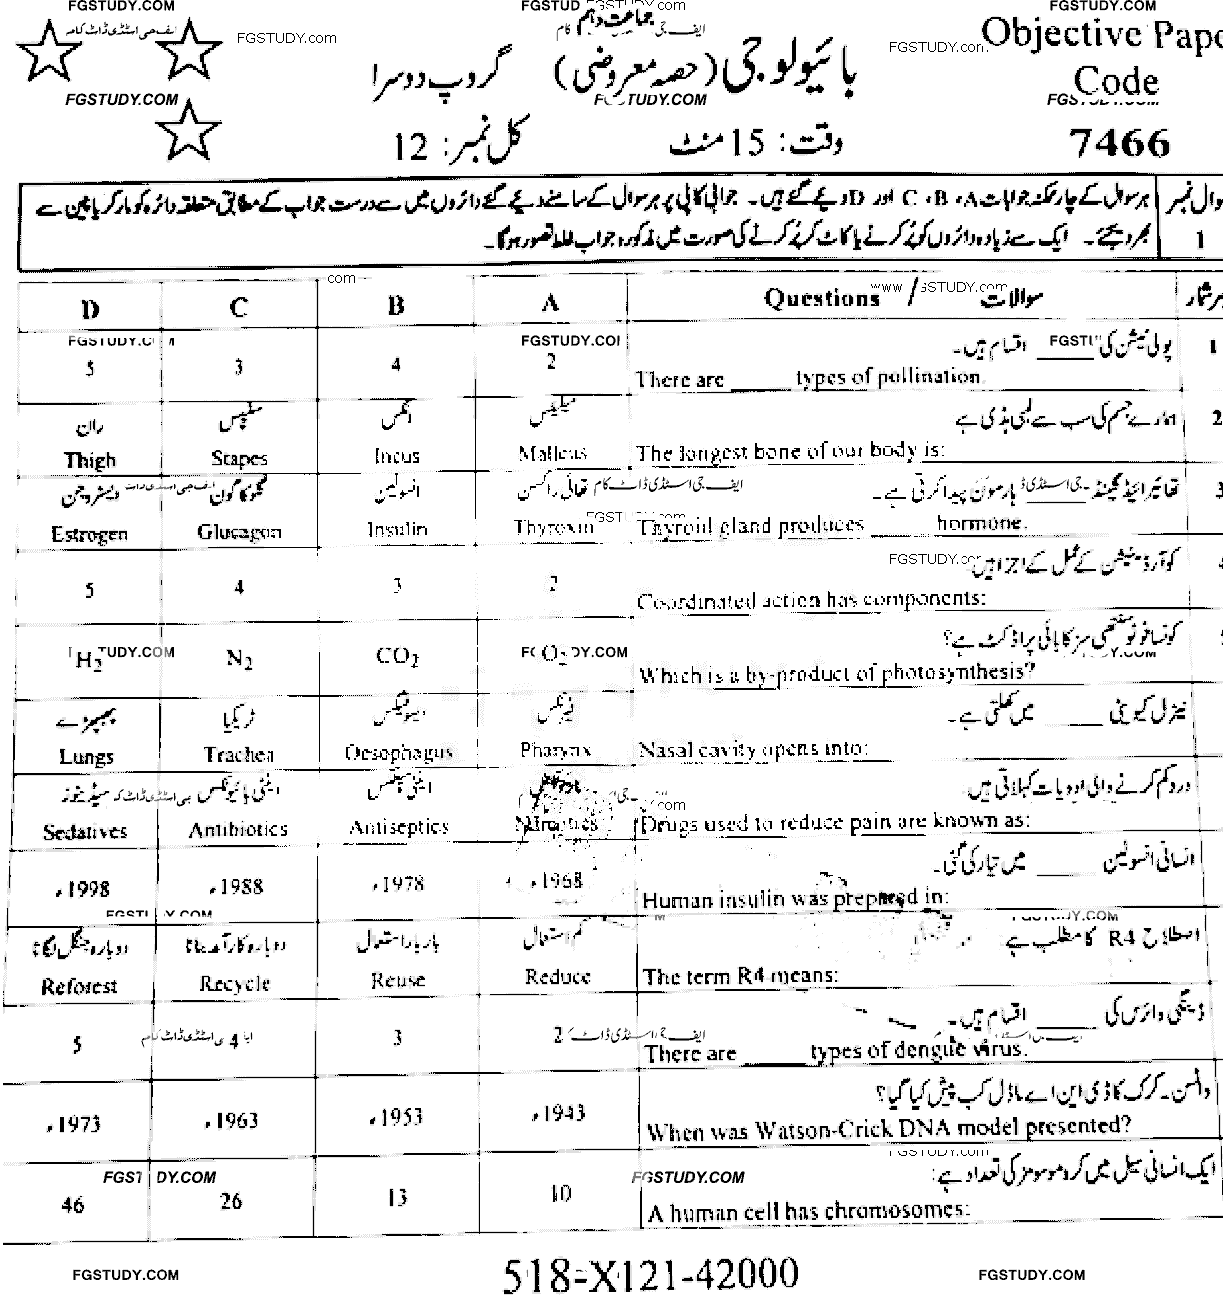 FGSTUDY.COM FGSTUD FGSTUDY.com FGSTUDY.COM
ایف جی اسٹڈی ڈاٹ کام جماعت دہم ایف جی کام
FGSTUDY.com FGSTUDY.con Objective Pape
گروپ دوسرا بائیولوجی (حصہ معروضی) Code
FGSTUDY.COM TUDY.COM
کل نمبر: 12 وقت: 15 منٹ 7466
وال نمبر ہر سوال کے چار ممکنہ جوابات A، B، C اور D دیئے گئے ہیں۔ جوابی کاپی پر ہر سوال کے سامنے دیئے گئے دائروں میں سے درست جواب کے مطابق متعلقہ دائرہ کو مارکر یا پین سے
1 بھر دیجئے۔ ایک سے زیادہ دائروں کو پُر کرنے یا کاٹ کر پُر کرنے کی صورت میں مذکورہ جواب غلط تصور ہوگا۔
com www STUDY.com
D C B A Questions / سوالات برشمار
FGSTUDY.C FGSTUDY.COI پولی نیشن کی ____ اقسام ہیں۔ 1
5 3 4 2 There are _____ types of pollination.
ران سٹیپس انکس میلیئس ہمارے جسم کی سب سے لمبی ہڈی ہے 2
Thigh Stapes Incus Malleus The longest bone of our body is:
ایسٹروجن گلوکاگون انسولین تھائی راکسن تھائیرائیڈ گلینڈ ہارمون پیدا کرتی ہے۔ 3
Estrogen Glucagon Insulin Thyroxin Thyroid gland produces _____ hormone.
FGSTUDY.cor کوآرڈینیشن کے عمل کے اجزا ہیں
5 4 3 2 Coordinated action has components:
کونسا فوٹوسنتھی سز کا بائی پراڈکٹ ہے؟
TUDY.COM DY.COM
H₂ N₂ CO₂ O₂ Which is a by-product of photosynthesis?
پھیپھڑے ٹریکیا ایسوفیگس فیرنکس نیزل کیویٹی ____ میں کھلتی ہے۔
Lungs Trachea Oesophagus Pharynx Nasal cavity opens into:
سیڈیٹوز اینٹی بائیوٹکس اینٹی سیپٹکس درد کم کرنے والی ادویات کہلاتی ہیں
Sedatives Antibiotics Antiseptics Narcotics Drugs used to reduce pain are known as:
انسانی انسولین ____ میں تیار کی گئی۔
1998ء 1988ء 1978ء 1968ء Human insulin was prepared in:
Y.COM Y.COM
دوبارہ جنگل لگانا دوبارہ کارآمد بنانا بار بار استعمال کم استعمال اصطلاح R4 کا مطلب ہے
Reforest Recycle Reuse Reduce The term R4 means:
ڈینگی وائرس کی ____ اقسام ہیں۔
5 4 3 2 There are _____ types of dengue virus.
واٹسن۔کرک کا ڈی این اے ماڈل کب پیش کیا گیا؟
1973ء 1963ء 1953ء 1943ء When was Watson-Crick DNA model presented?
ایک انسانی سیل میں کروموسومز کی تعداد ہے:
DY.COM FGSTUDY.COM
46 26 13 10 A human cell has chromosomes:
FGSTUDY.COM 518-X121-42000 FGSTUDY.COM